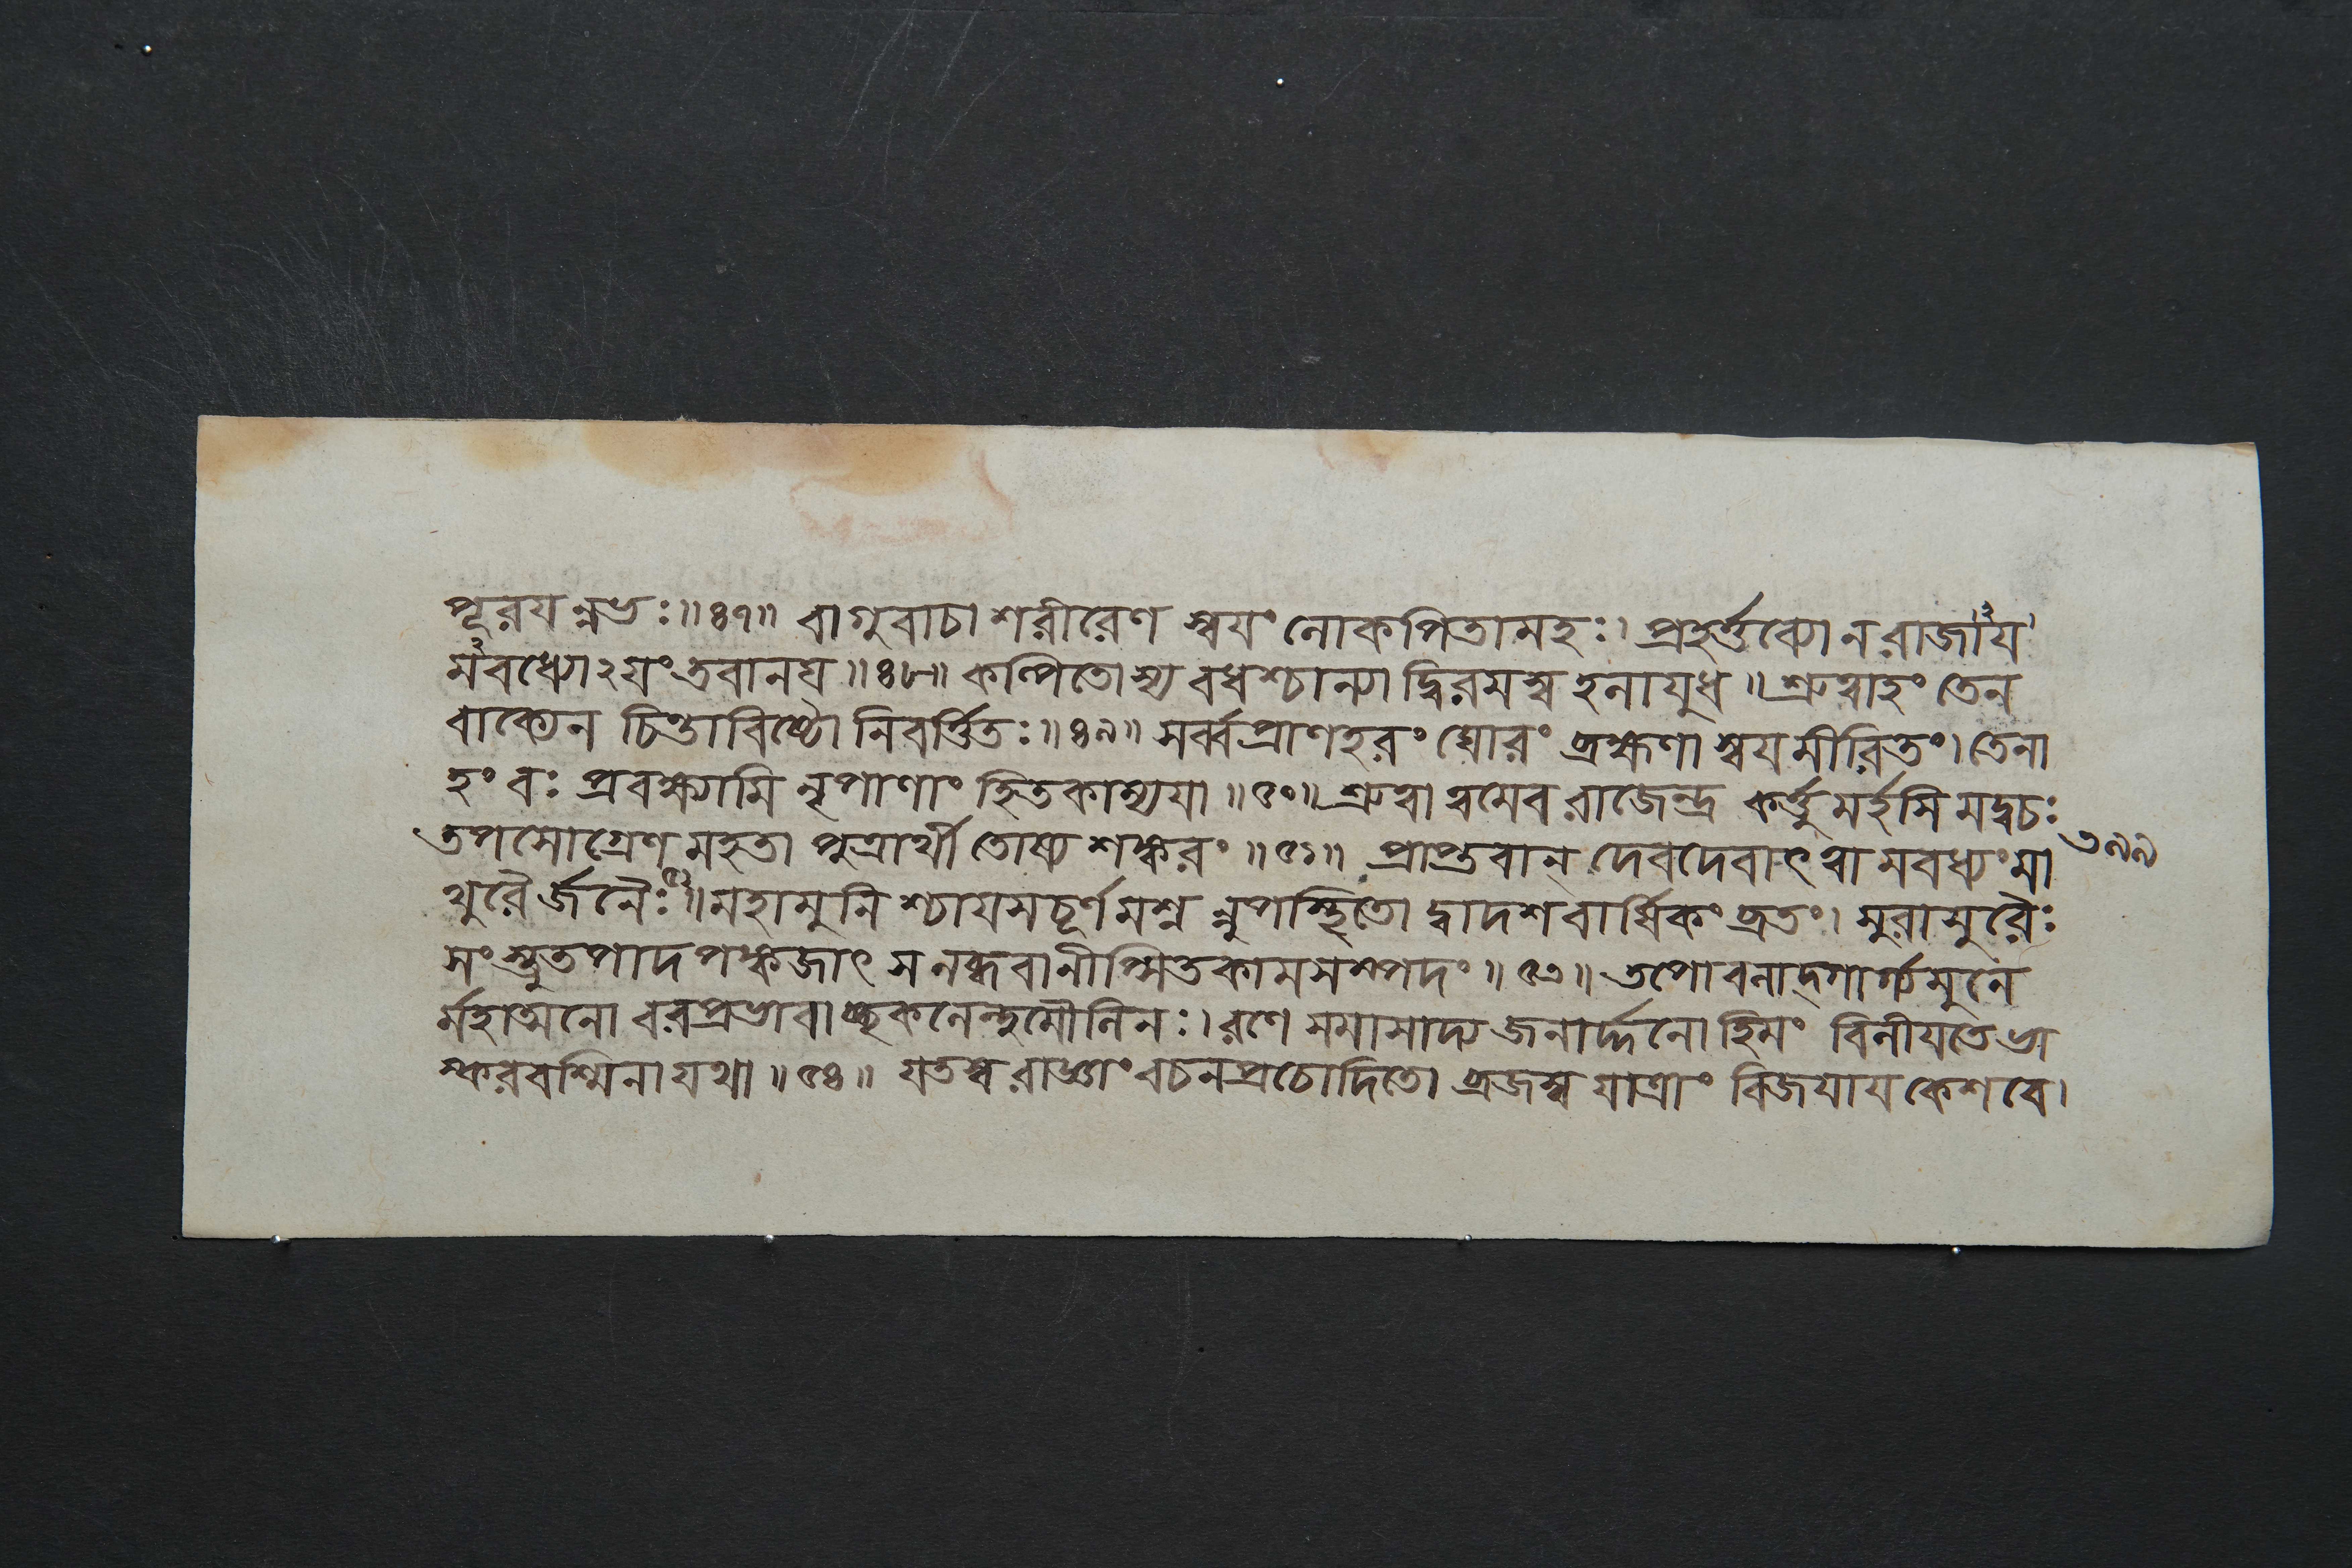 পূরযন্নভঃ॥৪৭॥ বাগুবাচা শরীরেণ স্বযং লোকপিতামহঃ। প্রহর্ত্তব্যো ন রাজাযং
মবধ্যোঽযং তবানঘ॥৪৮॥ কল্পিতোস্য বধশ্চান্যাদ্বিরমস্ব হলাযুধ॥ শ্রুত্বাহং তেন
বাক্যেন চিন্তাবিষ্টো নিবর্ত্তিতঃ॥৪৯॥ সর্ব্বপ্রাণহরং ঘোরং ব্রহ্মণা স্বযমীরিতং। তেনা
হং বঃ প্রবক্ষ্যামি নৃপাণাং হিতকাম্যযা॥৫০॥ শ্রুত্বা ত্বমেব রাজেন্দ্র কর্ত্তুমর্হসি মদ্বচঃ
তপসোগ্রেণ মহতা পুত্রার্থী তোষ্য শঙ্করং॥৫১॥ প্রাপ্তবান্ দেবদেবাৎ ত্বামবধ্যং মা
৩৯৯
থুরৈর্জনৈঃ॥৫২॥ মহামুনিশ্চাযসচূর্ণমশ্নন্নুপস্থিতো দ্বাদশবার্ষিকং ব্রতং। সুরাসুরৈঃ
সংস্তুতপাদপঙ্কজাৎ স লব্ধবানীপ্সিতকামসম্পদং॥৫৩॥ তপোবলাদ্গার্গ্যমুনে
র্মহাত্মনো বরপ্রভাবাচ্ছকলেন্দুমৌলিনঃ। রণে সমাসাদ্য জনার্দ্দনো হিমং বিলীযতে ভা
স্কররশ্মিনা যথা॥৫৪॥ যতস্ব রাজ্ঞাং বচনপ্রচোদিতো ব্রজস্ব যাত্রাং বিজযায কেশবে।